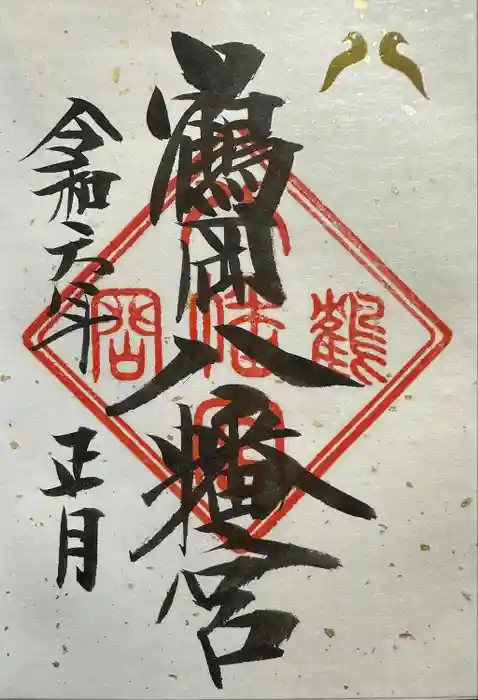 鶴岡八幡宮
令和六年
正月
鶴
八幡宮
岡